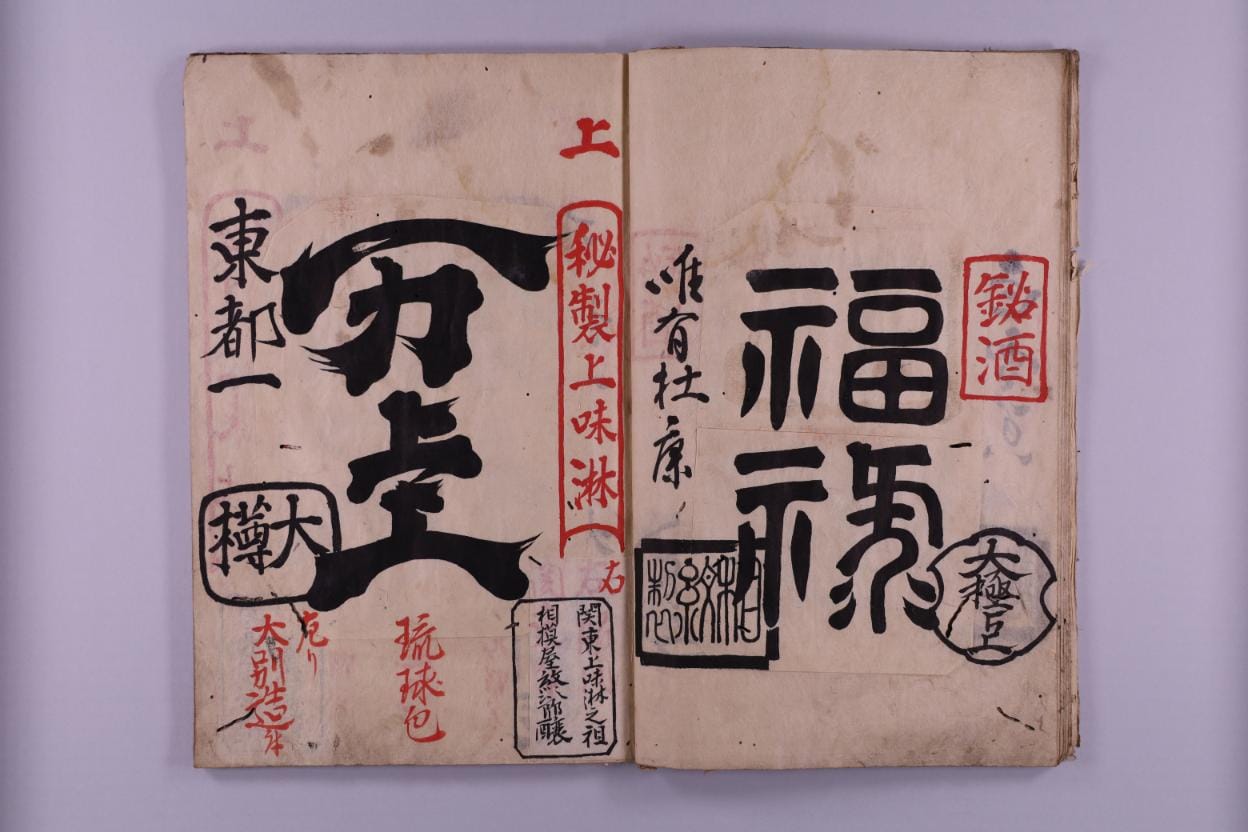 鉍酒
福禄
大極上
唯有杜康
上
秘製上味淋
右
関東上味淋之祖
相模屋紋次郎醸
力上
琉球包
東都一
大樽
大別造